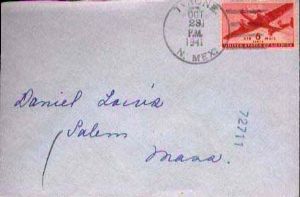 OCT
23
P.M.
1941
N. MEX.
AIR MAIL
6
UNITED STATES OF AMERICA
Daniel
Salem
Mass.
72711